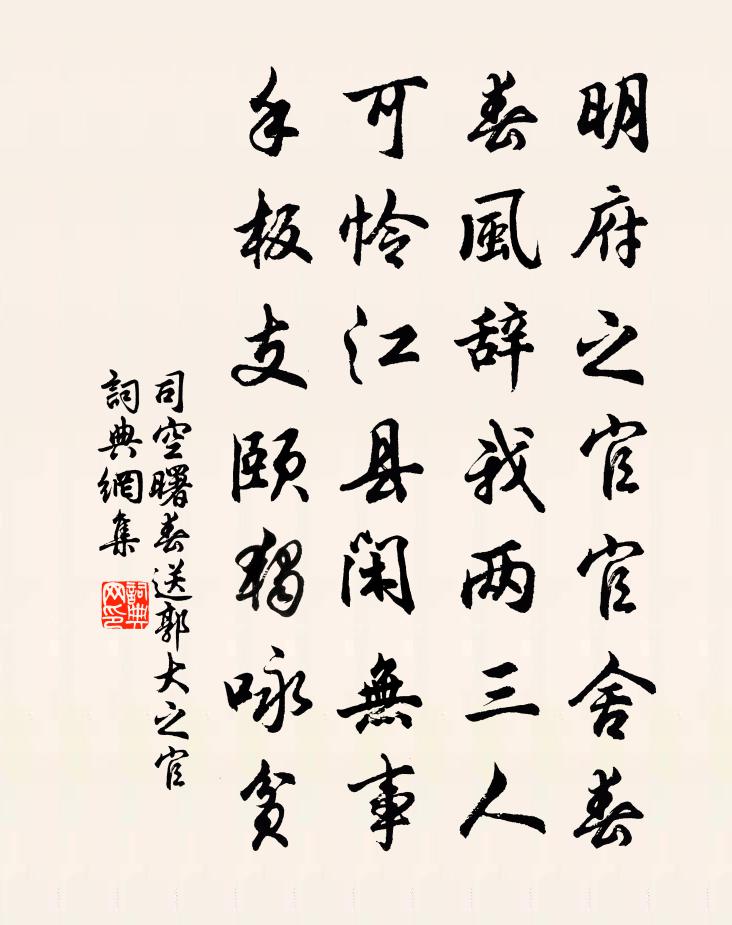 明府之官官舍春
春風辞我两三人
可怜江县闲無事
手板支頤獨咏貧
司空曙春送郭大之官
詞典網集
詞典网印